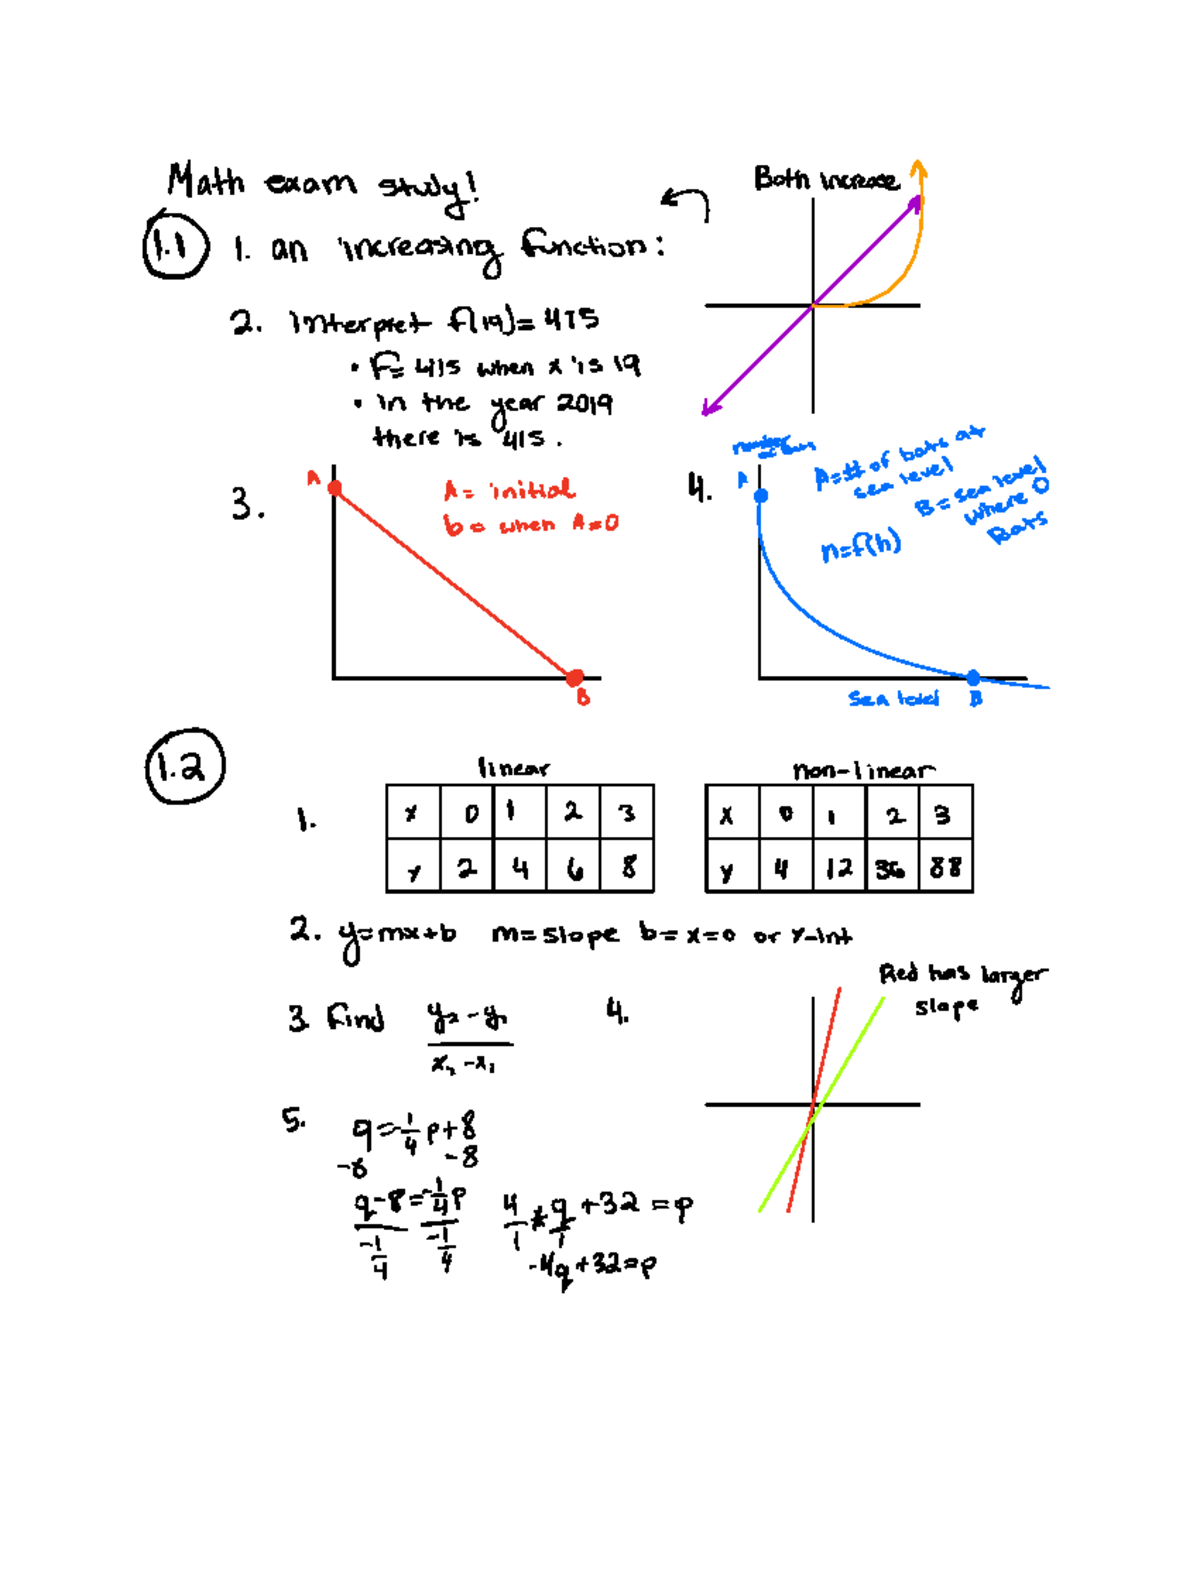 Math exam study!
Both increase
1.1
1. an increasing function:
2. Interpret f(19)=415
• F= 415 when x is 19
• in the year 2019
there is 415.
3.
A
A= initial
b= when A=0
B
4.
number
of bats
A
A=# of bats at
sea level
B= sea level
where 0
Bats
n=f(h)
Sea level B
1.2
1.
linear
x 0 1 2 3
y 2 4 6 8
non-linear
x 0 1 2 3
y 4 12 36 88
2. y=mx+b m=slope b= x=0 or Y-int
3. Find y₂-y₁
x₂-x₁
4.
Red has larger
slope
5.
q=-1/4 p+8
-8 -8
q-8=-1/4 p
-1/4 -1/4
4/1 * q/1 +32 =p
-4q+32=p